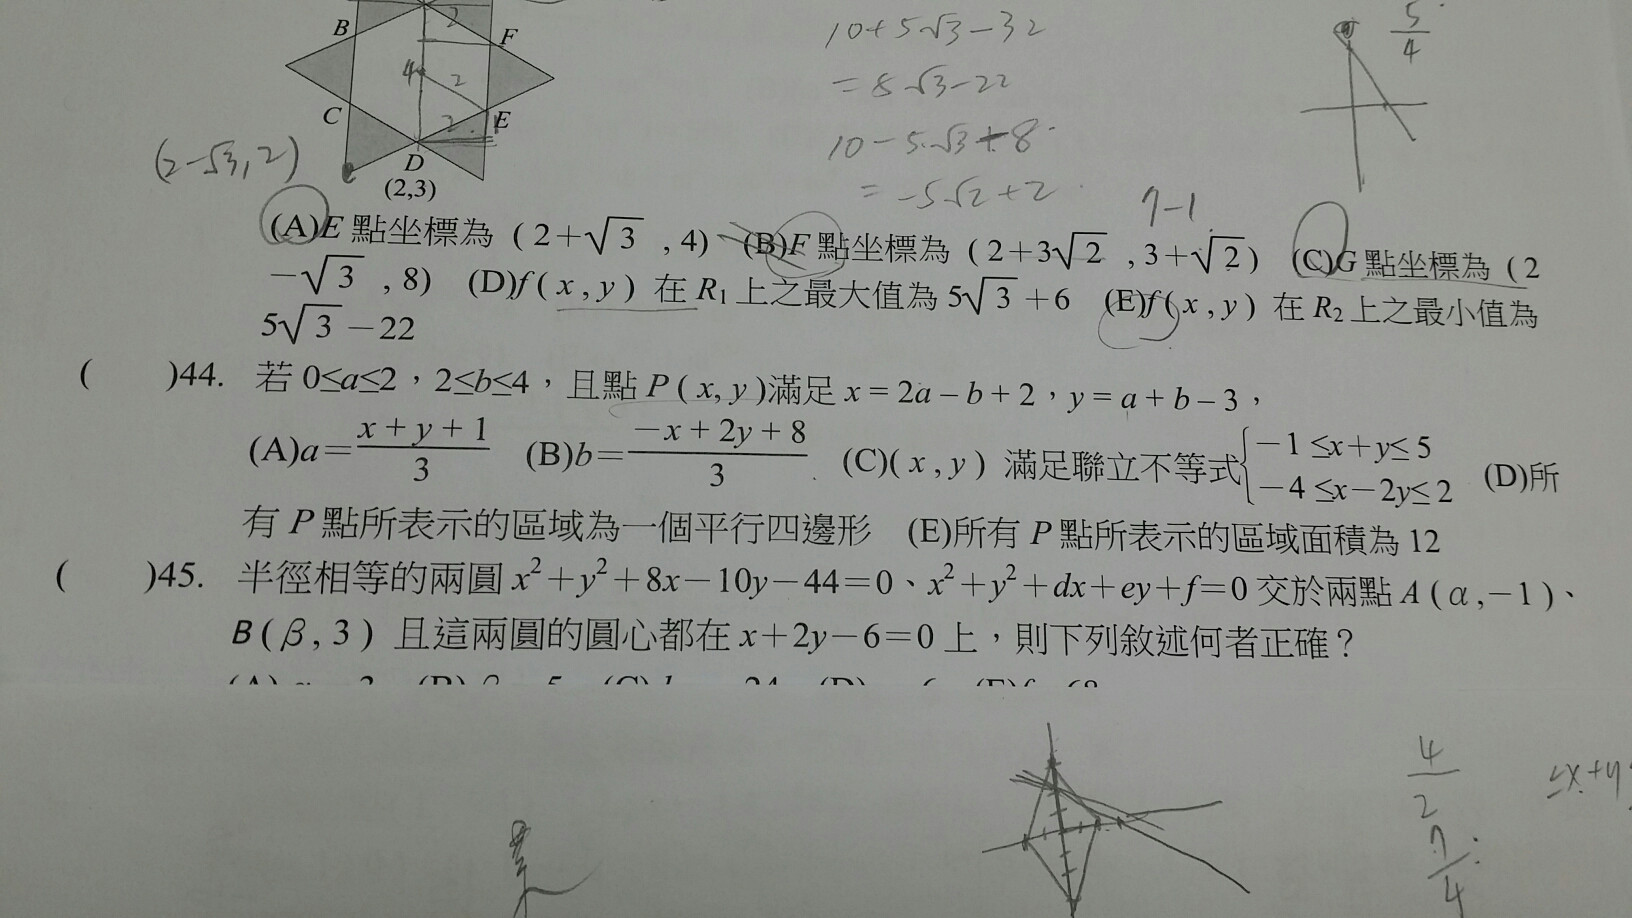 B
F
C
E
D
(2,3)
2
4
2
2
(2-√3,2)
10+5√3-32
=8√3-22
10-5√3+8
=-5√2+2
5/4
7-1
(A)E 點坐標為 (2+√3 , 4) (B)F 點坐標為 (2+3√2 , 3+√2) (C)G 點坐標為 (2
-√3 , 8) (D)f(x , y) 在 R₁ 上之最大值為 5√3+6 (E)f(x , y) 在 R₂ 上之最小值為
5√3-22
( )44. 若 0≤a≤2,2≤b≤4,且點 P(x, y)滿足 x=2a-b+2,y=a+b-3,
(A)a=(x+y+1)/3 (B)b=(-x+2y+8)/3 (C)(x , y) 滿足聯立不等式{-1≤x+y≤5 -4≤x-2y≤2 (D)所
有 P 點所表示的區域為一個平行四邊形 (E)所有 P 點所表示的區域面積為 12
( )45. 半徑相等的兩圓 x²+y²+8x-10y-44=0、x²+y²+dx+ey+f=0 交於兩點 A(α,-1)、
B(β, 3) 且這兩圓的圓心都在 x+2y-6=0 上,則下列敘述何者正確?
4/2
7/4